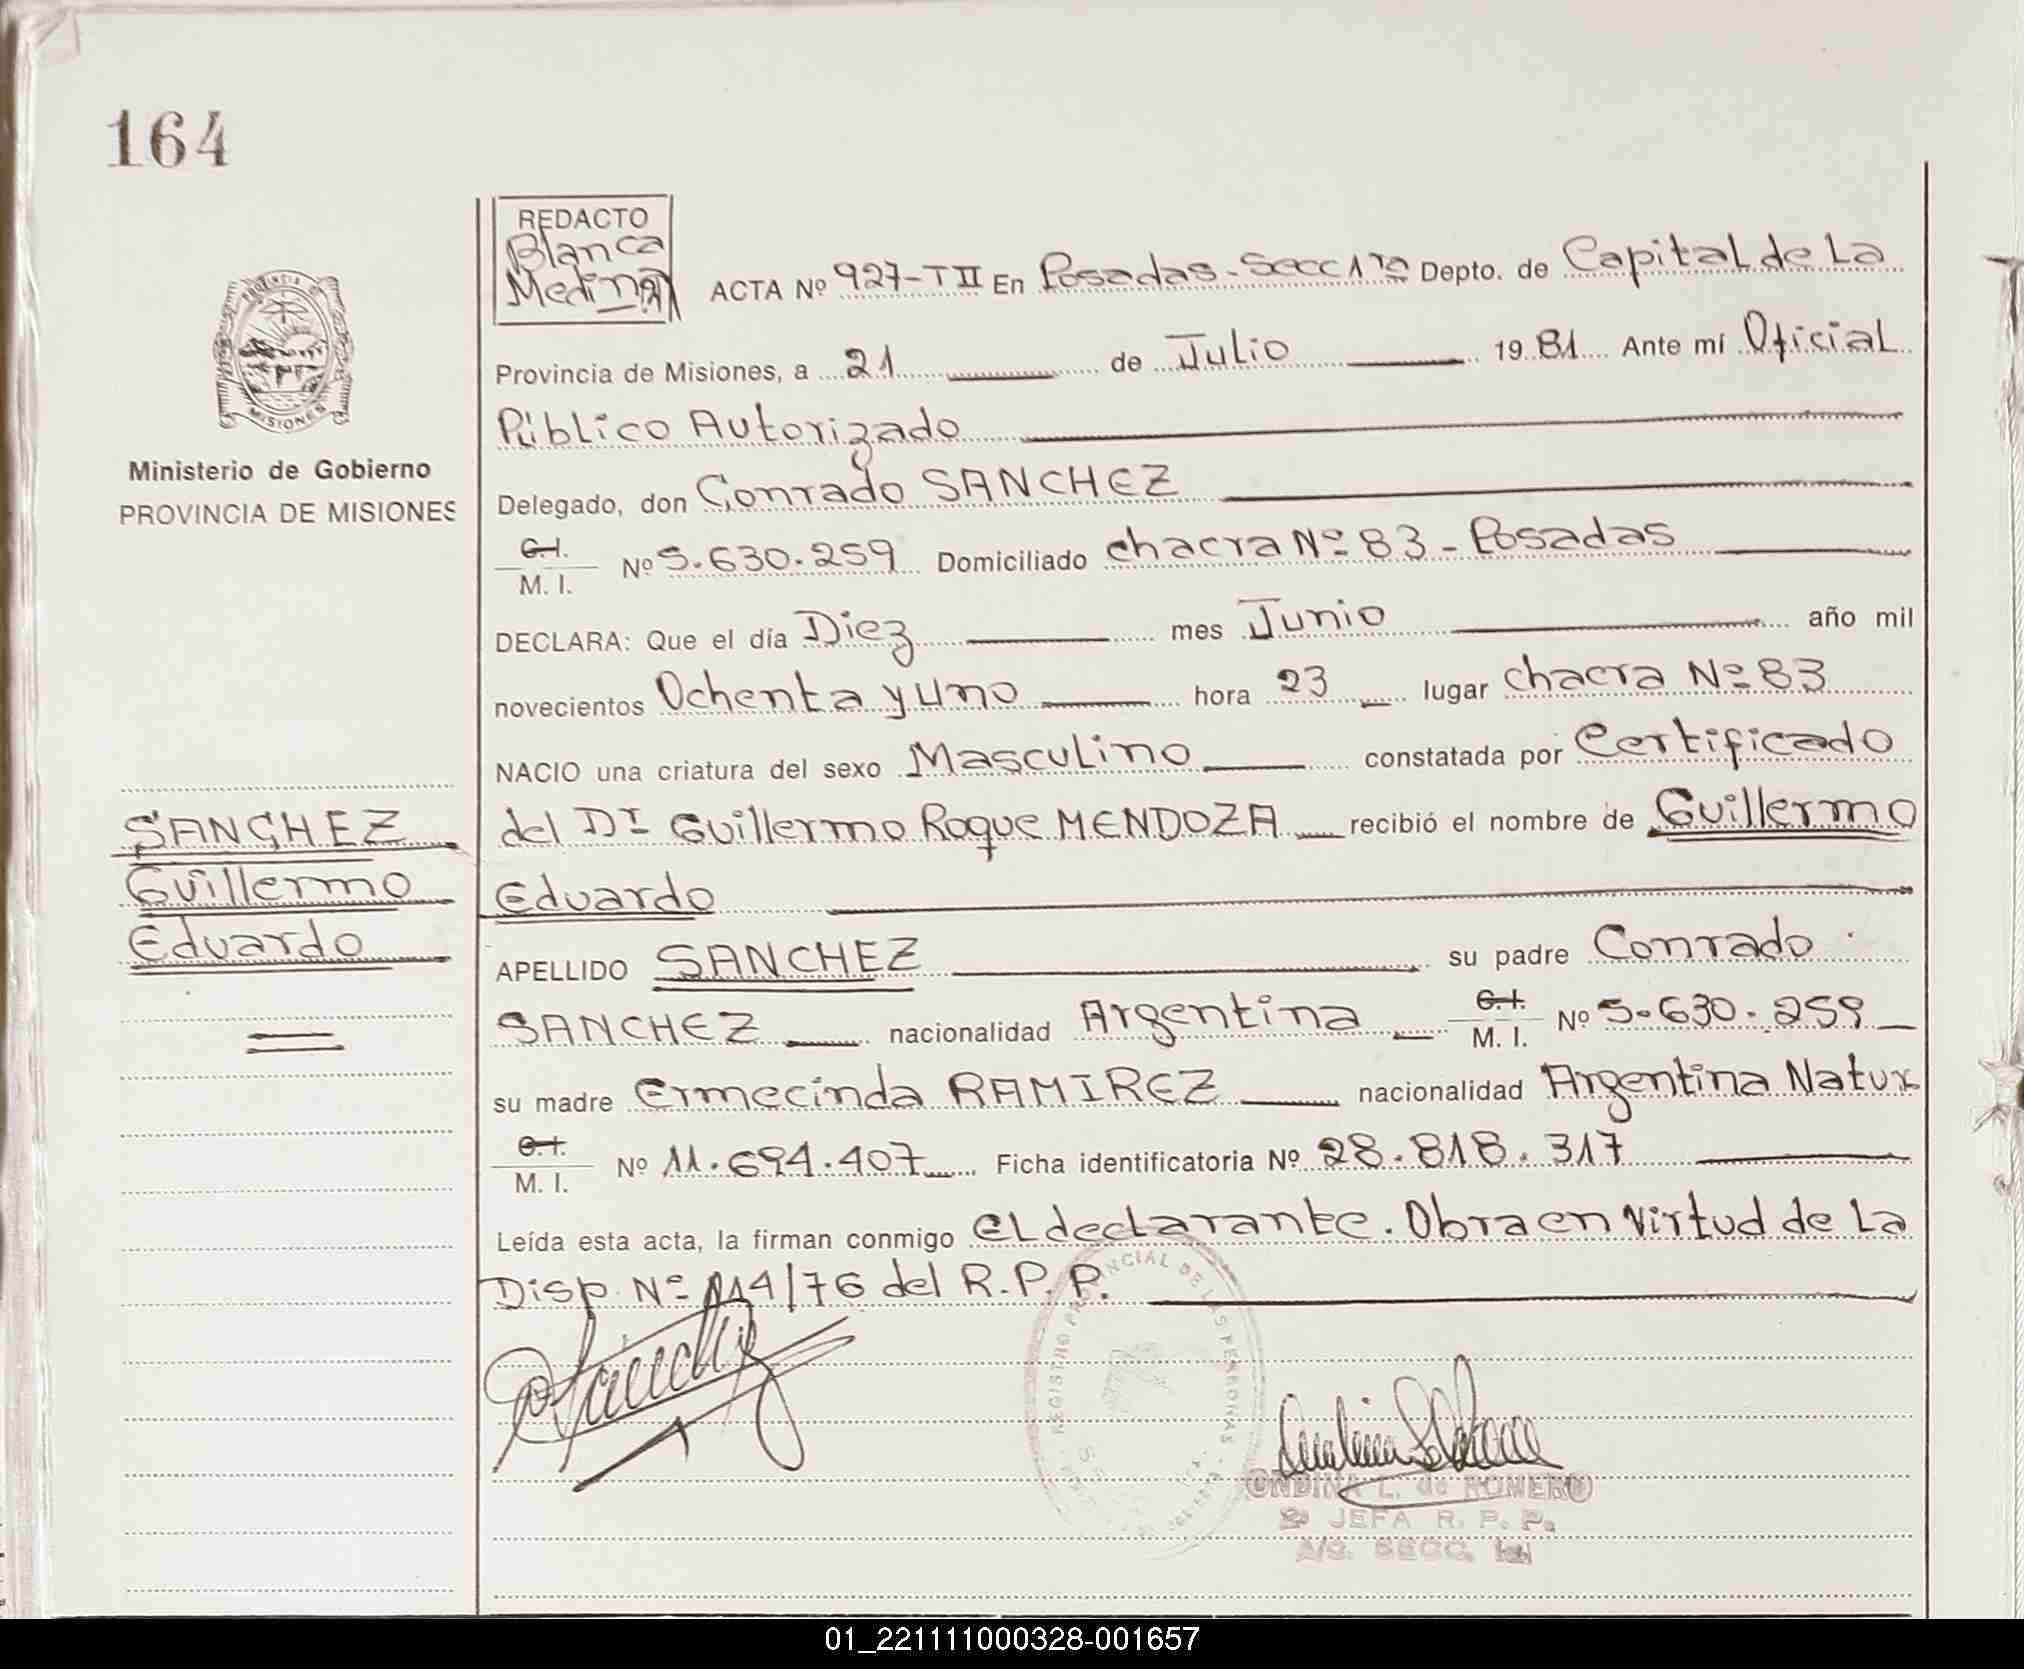 164
PROVINCIA DE
MISIONES
Ministerio de Gobierno
PROVINCIA DE MISIONES
SANCHEZ
Guillermo
Eduardo
REDACTO
Blanca
Medina
ACTA Nº 927-TII En Posadas-Secc 1ra Depto. de Capital de La
Provincia de Misiones, a 21 de Julio 1981 Ante mí Oficial
Público Autorizado
Delegado, don Conrado SANCHEZ
C.I.
M. I. Nº 5.630.259 Domiciliado chacra Nº 83 - Posadas
DECLARA: Que el día Diez mes Junio año mil
novecientos Ochenta y uno hora 23 lugar chacra Nº 83
NACIO una criatura del sexo Masculino constatada por Certificado
del Dr Guillermo Roque MENDOZA recibió el nombre de Guillermo
Eduardo
APELLIDO SANCHEZ su padre Conrado
SANCHEZ nacionalidad Argentina C.I. M. I. Nº 5.630.259
su madre Ermecinda RAMIREZ nacionalidad Argentina Natur
C.I.
M. I. Nº 11.694.407 Ficha identificatoria Nº 28.818.317
Leída esta acta, la firman conmigo el declarante. Obra en virtud de la
Disp. Nº 114/76 del R.P.P.
REGISTRO PROVINCIAL DE LAS PERSONAS
ONDINA L. de ROMERO
2º JEFA R. P. P.
A/C. SECC. 1ra
01_221111000328-001657